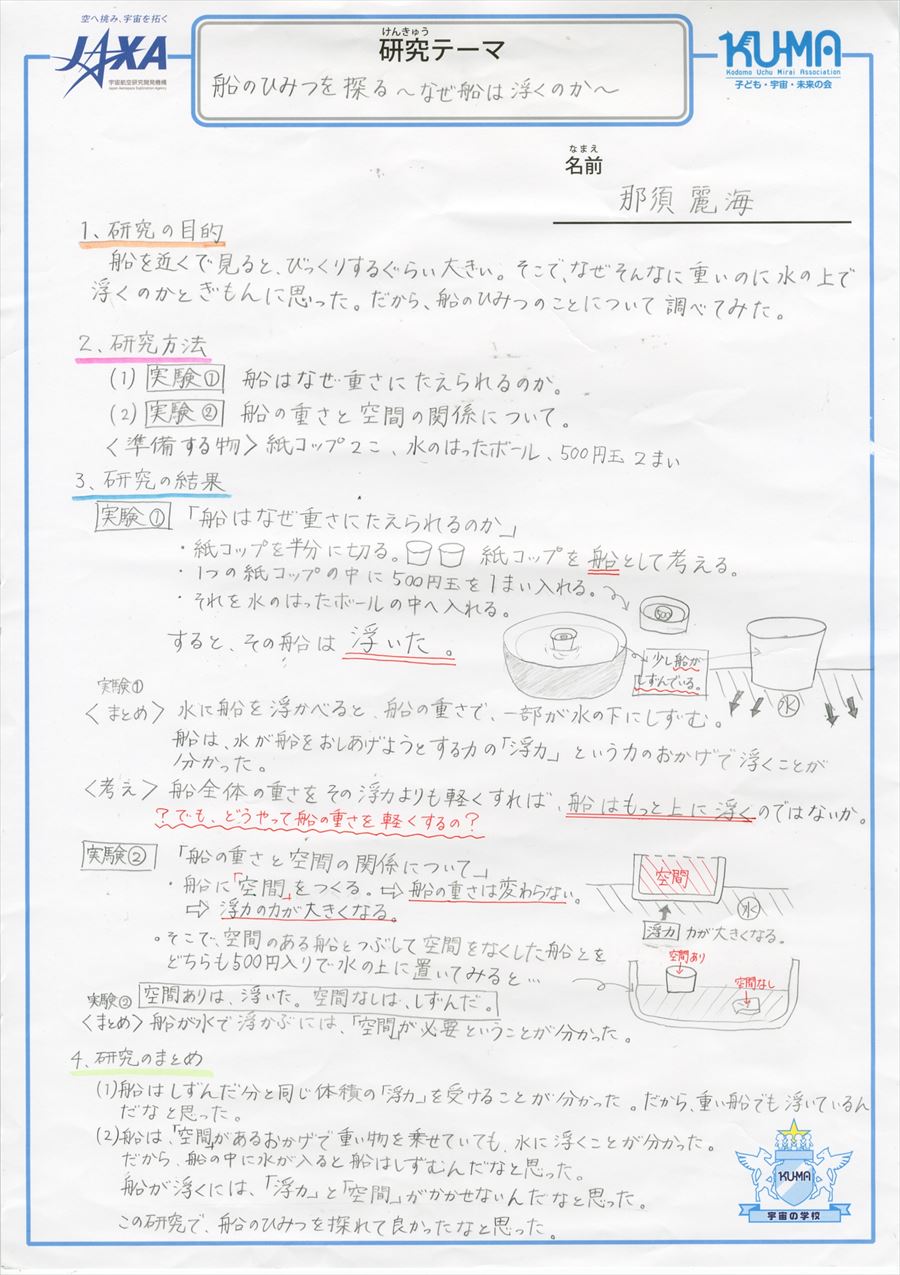 空へ挑み、宇宙を拓く
JAXA
宇宙航空研究開発機構
Japan Aerospace Exploration Agency
けんきゅう
研究テーマ
船のひみつを探る～なぜ船は浮くのか～
KU-MA
Kodomo Uchu Mirai Association
子ども・宇宙・未来の会
なまえ
名前
那須 麗海
1、研究の目的
船を近くで見ると、びっくりするぐらい大きい。そこで、なぜそんなに重いのに水の上で
浮くのかとぎもんに思った。だから、船のひみつのことについて調べてみた。
2、研究方法
(1) 実験① 船はなぜ重さにたえられるのか。
(2) 実験② 船の重さと空間の関係について。
<準備する物>紙コップ2こ、水のはったボール、500円玉2まい
3、研究の結果
実験① 「船はなぜ重さにたえられるのか」
・紙コップを半分に切る。 紙コップを船として考える。
・1つの紙コップの中に500円玉を1まい入れる。
・それを水のはったボールの中へ入れる。
500
すると、その船は 浮いた。
少し船が
しずんでいる。
水
実験①
<まとめ> 水に船を浮かべると、船の重さで、一部が水の下にしずむ。
船は、水が船をおしあげようとする力の「浮力」という力のおかげで浮くことが
分かった。
<考え> 船全体の重さをその浮力よりも軽くすれば、船はもっと上に浮くのではないか。
?でも、どうやって船の重さを軽くするの?
実験② 「船の重さと空間の関係について」
・船に「空間」をつくる。⇨船の重さは変わらない。
⇨ 浮力の力が大きくなる。
空間
水
浮力 力が大きくなる。
・そこで、空間のある船とつぶして空間をなくした船とを
どちらも500円入りで水の上に置いてみると…
空間あり
空間なし
実験② 空間ありは、浮いた。空間なしは、しずんだ。
<まとめ> 船が水で浮かぶには、「空間」が必要ということが分かった。
4、研究のまとめ
(1)船はしずんだ分と同じ体積の「浮力」を受けることが分かった。だから、重い船でも浮いているん
だなと思った。
(2)船は、「空間」があるおかげで重い物を乗せていても、水に浮くことが分かった。
だから、船の中に水が入ると船はしずむんだなと思った。
船が浮くには、「浮力」と「空間」がかかせないんだなと思った。
この研究で、船のひみつを探れて良かったなと思った。
KU-MA
宇宙の学校